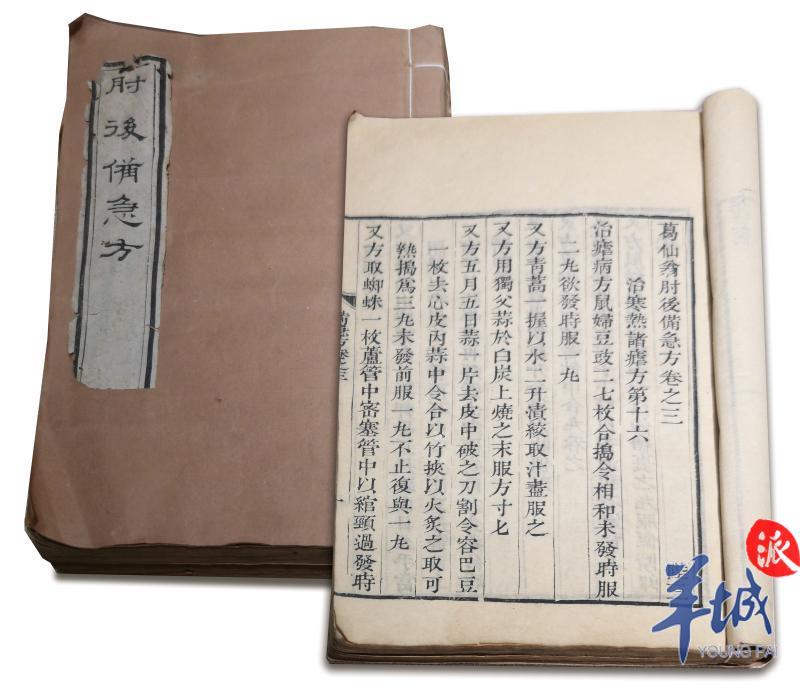 肘後備急方
葛仙翁肘後備急方卷之三
治寒熱諸瘧方第十六
治瘧病方鼠婦豆豉二七枚合搗令相和未發時服
二丸欲發時服一丸
又方青蒿一握以水二升漬絞取汁盡服之
又方用獨父蒜於白炭上燒之末服方寸匕
又方五月五日蒜一片去皮中破之刀割令容巴豆
一枚去心皮內蒜中令合以竹挾以火炙之取可
熱搗為三丸未發前服一丸不止復與一丸
又方取蜘蛛一枚蘆管中密塞管中以綰頸過發時
卷之三
一
羊城
派
YOUNG PAI